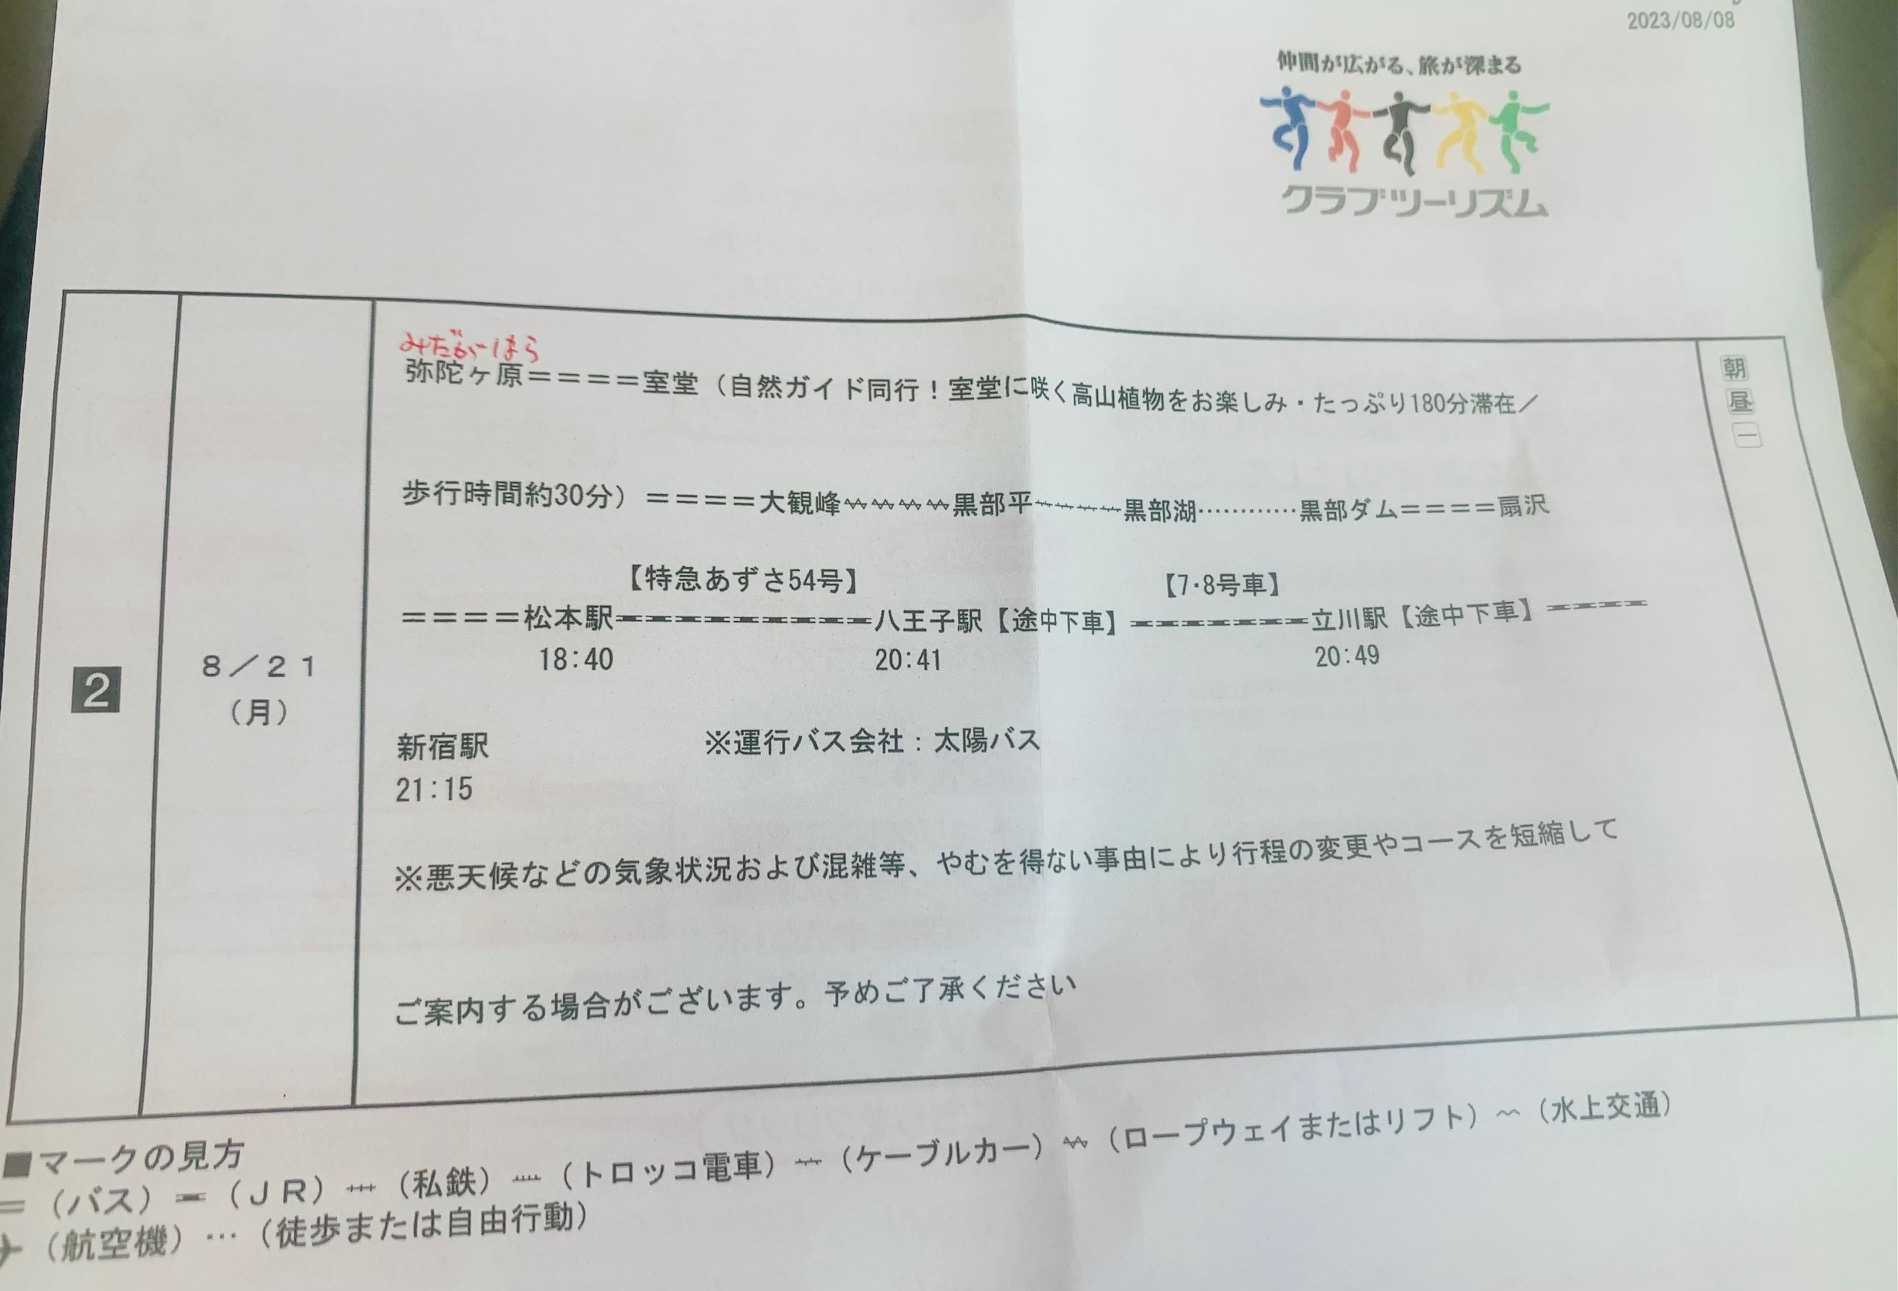 2023/08/08
仲間が広がる、旅が深まる
クラブツーリズム
みだがはら
弥陀ヶ原====室堂（自然ガイド同行！室堂に咲く高山植物をお楽しみ・たっぷり180分滞在／
朝
昼
一
歩行時間約30分）====大観峰 黒部平 黒部湖…………黒部ダム====扇沢
【特急あずさ54号】 【7・8号車】
====松本駅 八王子駅【途中下車】 立川駅【途中下車】
18:40 20:41 20:49
2
8／21
（月）
新宿駅 ※運行バス会社：太陽バス
21:15
※悪天候などの気象状況および混雑等、やむを得ない事由により行程の変更やコースを短縮して
ご案内する場合がございます。予めご了承ください
■マークの見方
=（バス） （ＪＲ） （私鉄） （トロッコ電車） （ケーブルカー） （ロープウェイまたはリフト） （水上交通）
（航空機）…（徒歩または自由行動）